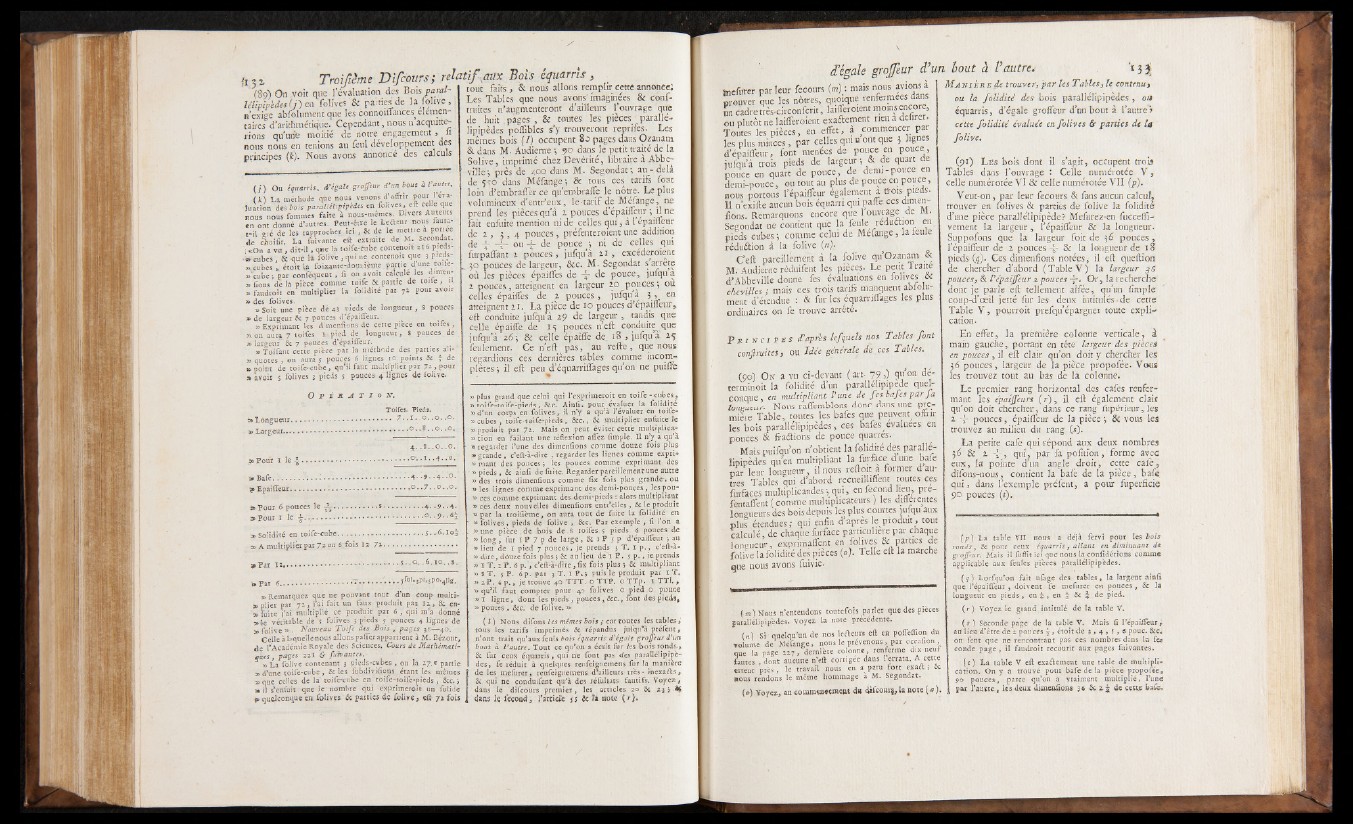 132 Troisième Discours; relatif aux Bois équarris,
(89) On voit que l'évaluation des Bois paral-
lélipipèdes (j) en solives & parties de la solive,
n'exige absolument que les connoissances élémen-
taires d'arithmétique. Cependant, nous n'acquitte-
rions qu'une moitié de notre engagement, si
nous nous en tenions au seul développement des
principes (k). Nous avons annoncé des calculs
(j) Ou équarris, d'égale grosseur d'un bout à l'autre.
(k) La méthode que nous venons d'offrir pour l'éva-
luation des bois parallélipipèdes en solives, est celle que
nous nous sommes faite à nous-mêmes. Divers Auteurs
en ont donné d'autres. Peut-être le lecteur nous saura-
t-il gré de les rapprocher ici, & de le mettre à portée
de choisir. La suivante est extraite de M. Secondat.
« On a vu, dit-il, que la toise-cube contenoit 216 pieds-
» cubes, & que la solive, qui ne contenoit que 3 pieds-
» cubes, étoit la soixante-douzième partie d'une toise-
» cube; par conséquent, si on avoit calculé les dimen-
» sions de la pièce comme toise & partie de toise, il
» faudroit en multiplier la solidité par 72 pour avoir
» des solives.
» Soit une pièce de 43 pieds de longueur, 8 pouces
» de largeur & 7 pouces d'épaisseur.
» Exprimant les dimensions de cette pièce en toises,
» on aura 7 toises 1 pied de longueur, 8 pouces de
» largeur & 7 pouces d'épaisseur.
» Toisant cette pièce par la méthode des parties ali-
» quotes, on aura 5 pouces 6 lignes 10 points & ½ de
» point de toise-cube, qu'il faut multiplier par 72, pour
» avoir 5 solives 3 pieds 5 pouces 4 lignes de solive.
OPÉRATION.
Toises. Pieds.
» Longueur 7..1..0..0.
» Largeur 0..8..0..0.
4..8..0..0.
» Pour 1 le 0..1..4..0.
» Base 4..9..4..0.
» Epaisseur 0..7..0..0.
» Pour 6 pouces le 4..9..4.
» Pour 1 le 0..9..4
» Solidité en toise-cube 5..6.10½
» A multiplier par 72 ou 6 fois 12 72
» Par 12 5..0..6.10..8.
» Par 6
» Remarquez que ne pouvant tout d'un coup multi-
» plier par 72, j'ai fait un faux produit par 12, & en-
» suite j'ai multiplié ce produit par 6, qui m'a donné
» le véritable de 5 solives 3 pieds 5 pouces 4 lignes de
» solive ». Nouveau Toisé des Bois, pages
Celle à laquelle nous allons passer appartient à M. Bézout,
de l'Académie Royale des Sciences, Cours de Mathémati-
ques, pages 223 & suivantes.
» La solive contenant 3 pieds-cubes, ou la 72.e partie
» d'une toise-cube, & les subdivisions étant les mêmes
» que celles de la toise-cube en toise-toise-pieds, &c.,
» il s'ensuit que le nombre qui exprimeroit un solide
» quelconque en solives & parties de solive, est 72 fois
tout faits, & nous allons remplir cette annonce.
Les Tables que nous avons imaginées & cons-
truites n'augmenteront d'ailleurs l'ouvrage que
de huit pages, & toutes les pièces parallé-
lipipèdes possibles s'y trouveront reprises. Les
mêmes bois (l) occupent 80 pages dans Ozanam
& dans M. Audierne; 90 dans le petit traité de la
Solive, imprimé chez Devérité, libraire à Abbe-
ville; près de 400 dans M. Segondat; au-delà
de 500 dans Mésange; & tous ces tarifs sont
loin d'embrasser ce qu'embrasse le nôtre. Le plus
volumineux d'entr'eux, le tarif de Mésange, ne
prend les pièces qu'à 2 pouces d'épaisseur; il ne
fait ensuite mention ni de celles qui, à l'épaisseur
de 2, 3, 4 pouces, présenteroient une addition
de ou de pouce; ni de celles qui
surpassant 2 pouces, jusqu'à 21, excéderoient
30 pouces de largeur, &c. M. Segondat s'arrête
où les pièces épaisses de de pouce, jusqu'à
2 pouces, atteignent en largeur 20 pouces; où
celles épaisses de 2 pouces, jusqu'à 3, en
atteignent 21. La pièce de 10 pouces d'épaisseur,
est conduite jusqu'à 29 de largeur, tandis que
celle épaisse de 15 pouces n'est conduite que
jusqu'à 26; & celle épaisse de 18, jusqu'à 25
seulement. Ce n'est pas, au reste, que nous
regardions ces dernières tables comme incom-
plètes; il est peu d'équarrissages qu'on ne puisse
» plus grand que celui qui l'exprimeroit en toise-cubes,
» toise-toise-pieds, &c. Ainsi, pour évaluer la solidité
» d'un corps en solives, il n'y a qu'à l'évaluer en toise-
» cubes, toise-toise-pieds, &c., & multiplier ensuite le
» produit par 72. Mais on peut éviter cette multiplica-
» tion en faisant une réflexion assez simple. Il n'y a qu'à
» regarder l'une des dimensions comme douze fois plus
» grande, c'est-à-dire, regarder les lignes comme expri-
» mant des pouces; les pouces comme exprimant des
» pieds, & ainsi de suite. Regarder pareillement une autre
» des trois dimensions comme six fois plus grande, ou
» les lignes comme exprimant des demi-pouces, les pou-
» ces comme exprimant des demi-pieds: alors multipliant
» ces deux nouvelles dimensions entr'elles, & le produit
» par la troisième, on aura tout de suite la solidité en
» solives, pieds de solive, &c. Par exemple, si l'on a
» une pièce de bois de 8 toises 5 pieds 6 pouces de
» long, sur 1 P 7 p de large, & 1 P 5 p d'épaisseur; au
» lieu de 1 pied 7 pouces, je prends 3 T. 1 p., c'est-à-
» dire, douze fois plus; & au lieu de 1 P. 5 p., je prends
» 1 T. 2 P. 6 p., c'est-à-dire, six fois plus; & multipliant
» 8 T. 5 P. 6 p. par 3 T. 1 P.; puis le produit par 1 T.
» 2 P. 6 p., je trouve 40 TTT. 0 TTP. 0 TTp. 5 TTl.,
» qu'il faut compter pour 40 solives 0 pied 0 pouce
» 5 ligne, dont les pieds, pouces, &c., sont des pieds,
» pouces, &c. de solive. »
(l) Nous disons les mêmes bois; car toutes les tables,
tous les tarifs imprimés & répandus jusqu'à présent,
n'ont trait qu'aux seuls bois équarris d'égale grosseur d'un
bout à l'autre. Tout ce qu'on a écrit sur les bois ronds,
& sur ceux équarris, qui ne sont pas des parallélipipè-
des, se réduit à quelques renseignemens sur la manière
de les mesurer, renseignemens d'ailleurs très-inexacts,
& qui ne conduisent qu'à des résultats fautifs. Voyez,
dans le discours premier, les articles 20 & 23; &
dans le second, l'article 55 & la note (r).
d'égale grosseur d'un bout à l'autre. 133
mesurer par leur secours (m): mais nous avions à
prouver que les nôtres, quoique renfermées dans
un cadre très-circonscrit, laisseroient moins encore,
ou plutôt ne laisseroient exactement rien à desirer.
Toutes les pièces, en effet, à commencer par
les plus minces, par celles qui n'ont que 3 lignes
d'épaisseur, sont menées de pouce en pouce,
jusqu'à trois pieds de largeur; & de quart de
pouce en quart de pouce, de demi-pouce en
demi-pouce, ou tout au plus de pouce en pouce,
nous portons l'épaisseur également à trois pieds.
Il n'existe aucun bois équarri qui passe ces dimen-
sions. Remarquons encore que l'ouvrage de M.
Segondat ne contient que la seule réduction en
pieds cubes; comme celui de Mésange, la seule
réduction à la solive (n).
C'est pareillement à la solive qu'Ozanam &
M. Audierne réduisent les pièces. Le petit Traité
d'Abbeville donne ses évaluations en solives &
chevilles; mais ces trois tarifs manquent absolu-
ment d'étendue: & sur les équarrissages les plus
ordinaires on se trouve arrêté.
PRINCIPES d'après lesquels nos Tables sont
construites, ou Idée générale de ces Tables.
(90) ON a vu ci-devant (art. 79,) qu'on dé-
terminoit la solidité d'un parallélipipède quel-
conque, en multipliant l'une de ses bases par sa
longueur. Nous rassemblons donc dans une pre-
mière Table, toutes les bases que peuvent offrir
les bois parallélipipèdes, ces bases évaluées en
pouces & fractions de pouce quarrés.
Mais puisqu'on n'obtient la solidité des parallé-
lipipèdes qu'en multipliant la surface d'une base
par leur longueur, il nous restoit à former d'au-
tres Tables qui d'abord recueillissent toutes ces
surfaces multiplicandes; qui, en second lieu, pré-
sentassent (comme multiplicateurs) les différentes
longueurs des bois depuis les plus courtes jusqu'aux
plus étendues; qui enfin d'après le produit, tout
calculé, de chaque surface particulière par chaque
longueur, exprimassent en solives & parties de
solive la solidité des pièces (o). Telle est la marche
que nous avons suivie.
(m) Nous n'entendons toutefois parler que des pièces
parallélipipèdes. Voyez la note précédente.
(n) Si quelqu'un de nos lecteurs est en possession du
volume de Mésange, nous le prévenons, par occasion,
que la page 227, dernière colonne, renferme dix neuf
fautes, dont aucune n'est corrigée dans l'errata. A cette
exception près, le travail nous en a paru fort exact; &
nous rendons le même hommage à M. Segondat.
(o) Voyez, au commencement du discours, la note (a).
MANIÈRE de trouver, par les Tables, le contenu,
ou la solidité des bois parallélipipèdes, ou
équarris, d'égale grosseur d'un bout à l'autre;
cette solidité évaluée en solives & parties de la
solive.
(91) LES bois dont il s'agit, occupent trois
Tables dans l'ouvrage: Celle numérotée V,
celle numérotée VI & celle numérotée VII (p).
Veut-on, par leur secours & sans aucun calcul,
trouver en solives & parties de solive la solidité
d'une pièce parallélipipède? Mesurez-en successi-
vement la largeur, l'épaisseur & la longueur.
Supposons que la largeur soit de 36 pouces,
l'épaisseur de 2 pouces ½ & la longueur de 18
pieds (q). Ces dimensions notées, il est question
de chercher d'abord (Table V) la largeur 36
pouces, & l'épaisseur 2 pouces ½. Or, la recherche
donc je parle est tellement aisée, qu'un simple
coup-d'œil jetté sur les deux intitulés de cette
Table V, pourroit presqu'épargner toute expli-
cation.
En effet, la première colonne verticale, à
main gauche, portant en tête largeur des pièces
en pouces, il est clair qu'on doit y chercher les
36 pouces, largeur de la pièce proposée. Vous
les trouvez tout au bas de la colonne.
Le premier rang horizontal des cases renfer-
mant les épaisseurs (r), il est également clair
qu'on doit chercher, dans ce rang supérieur, les
2 ½ pouces, épaisseur de la pièce; & vous les
trouvez au milieu du rang (s).
La petite case qui répond aux deux nombres
36 & 2 ½, qui, par sa position, forme avec
eux, la pointe d'un angle droit, cette case,
disons-nous, contient la base de la pièce, base
qui, dans l'exemple présent, a pour superficie
90 pouces (t).
(p) La table VII nous a déjà servi pour les bois
ronds, & pour ceux équarris, allant en diminuant de
grosseur. Mais il suffit ici que nous la considérions comme
applicable aux seules pièces parallélipipèdes.
(q) Lorsqu'on fait usage des tables, la largeur ainsi
que l'épaisseur, doivent se mesurer en pouces, & la
longueur en pieds, en ¼, en ½ & ¾ de pied.
(r) Voyez le grand intitulé de la table V.
(s) Seconde page de la table V. Mais si l'épaisseur,
au lieu d'être de 2 pouces ½, étoit de 3, 4, 5, 6 pouc. &c.
on sent que ne rencontrant pas ces nombres dans la se-
conde page, il faudroit recourir aux pages suivantes.
(t) La table V est exactement une table de multipli-
cation. On y a trouvé pour base de la pièce proposée,
90 pouces, parce qu'on a vraiment multiplié, l'une
par l'autre, les deux dimensions 36 & 2 ½ de cette base.